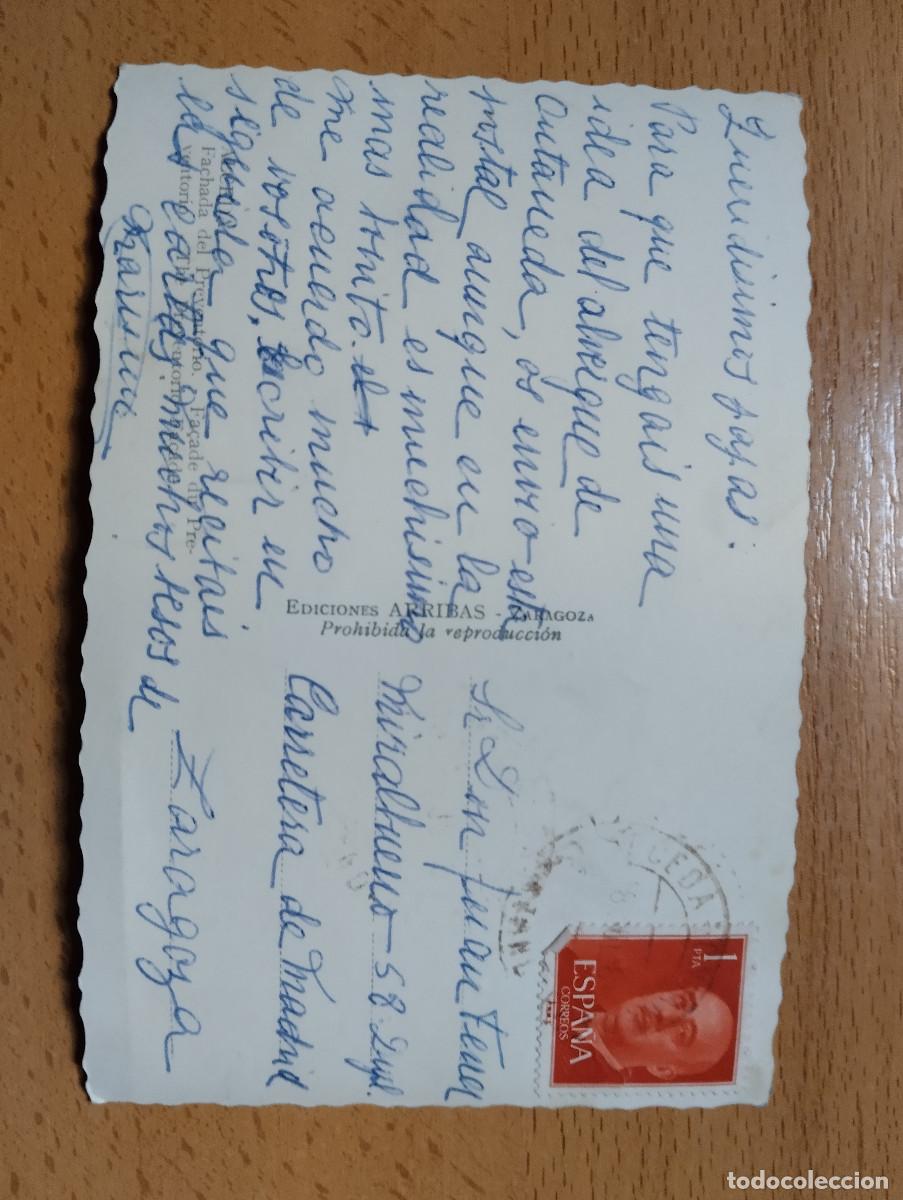 Queridisimos papas.
Para que tengais una
idea del alvergue de
ontaneda, os envio esta
postal aunque en la
realidad es muchisimo
mas bonito.
me acuerdo mucho
de vosotros, escribir en
seguida que recibais
las cartas muchos besos de
Fachada del Preventorio. Façade du Pre-
ventorio.
EDICIONES ARRIBAS - ZARAGOZA
Prohibida la reproducción
Sr Don Juan Tena
Mirabueno 58. Dupl.
Carretera de Madrid
Zaragoza
1
PTA
ESPAÑA
CORREOS
todocoleccion